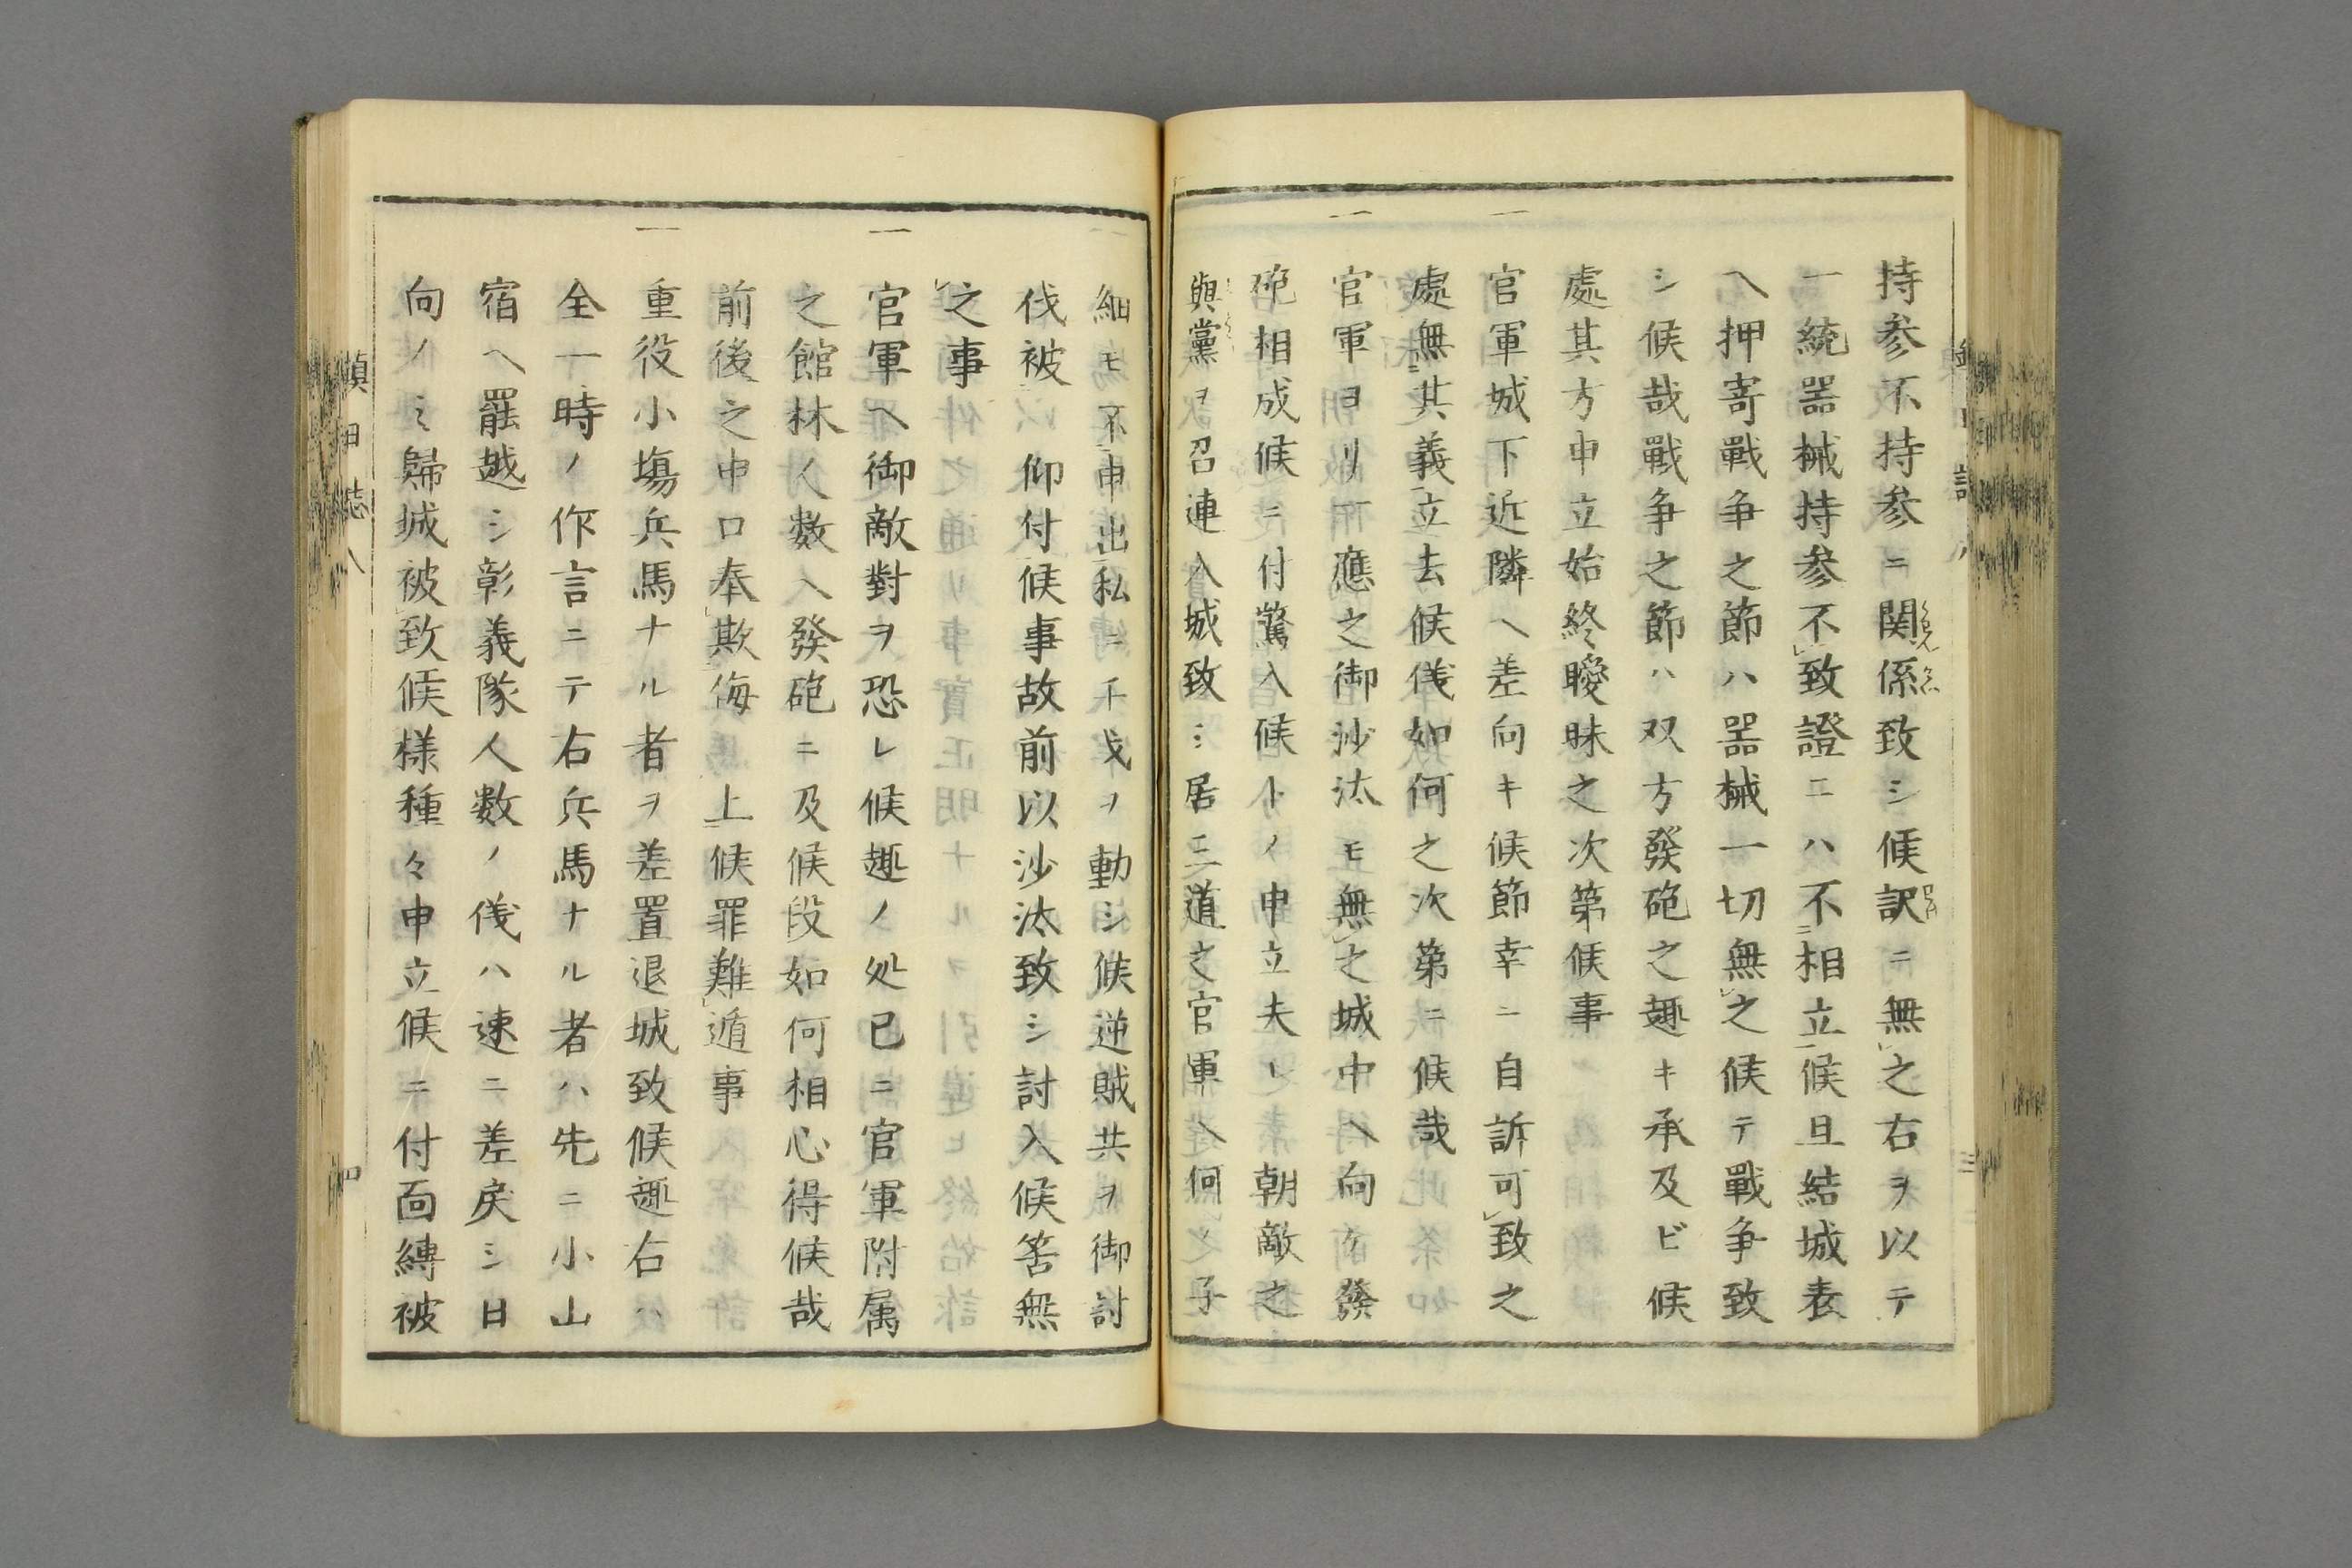 持参不持参ニ関係致シ候訳ニ無之右ヲ以テ
一統器械持参不致證ニハ不相立候旦結城表
ヘ押寄戰争之節ハ器械一切無之候テ戰争致
シ候哉戰争之節ハ双方發砲之趣キ承及ビ候
處其方申立始終曖昧之次第候事
一官軍城下近隣ヘ差向キ候節幸ニ自訴可致之
處無其義立去候儀如何之次第ニ候哉
一官軍ヨリ應之御沙汰モ無之城中ヘ向ケ發
砲相成候ニ付驚入候トノ申立夫レ朝敵之
與黨ヲ召連入城致シ居三道之官軍ヘ何ノ子
細モ不申出私ニ干戈ヲ動シ候逆賊共ヲ御討
伐被仰付候事故前以沙汰致シ討入候筈無
之事
一官軍ヘ御敵對ヲ恐レ候趣ノ処已ニ官軍附属
之館林人数ヘ發砲ニ及候段如何相心得候哉
前後之申口奉欺侮上候罪難遁事
一重役小場兵馬ナル者ヲ差置退城致候趣右ハ
全一時ノ作言ニテ右兵馬ナル者ハ先ニ小山
宿ヘ罷越シ彰義隊人数ノ儀ハ速ニ差戻シ日
向ノミ歸城被致候様種々申立候ニ付面縛被